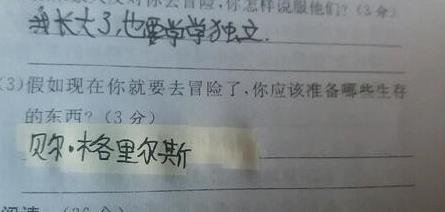 反对你去冒险,你怎样说服他们?(3分)
我长大了,也要学学独立.
(3)假如现在你就要去冒险了,你应该准备哪些生存
的东西?(3分)
贝尔·格里尔斯